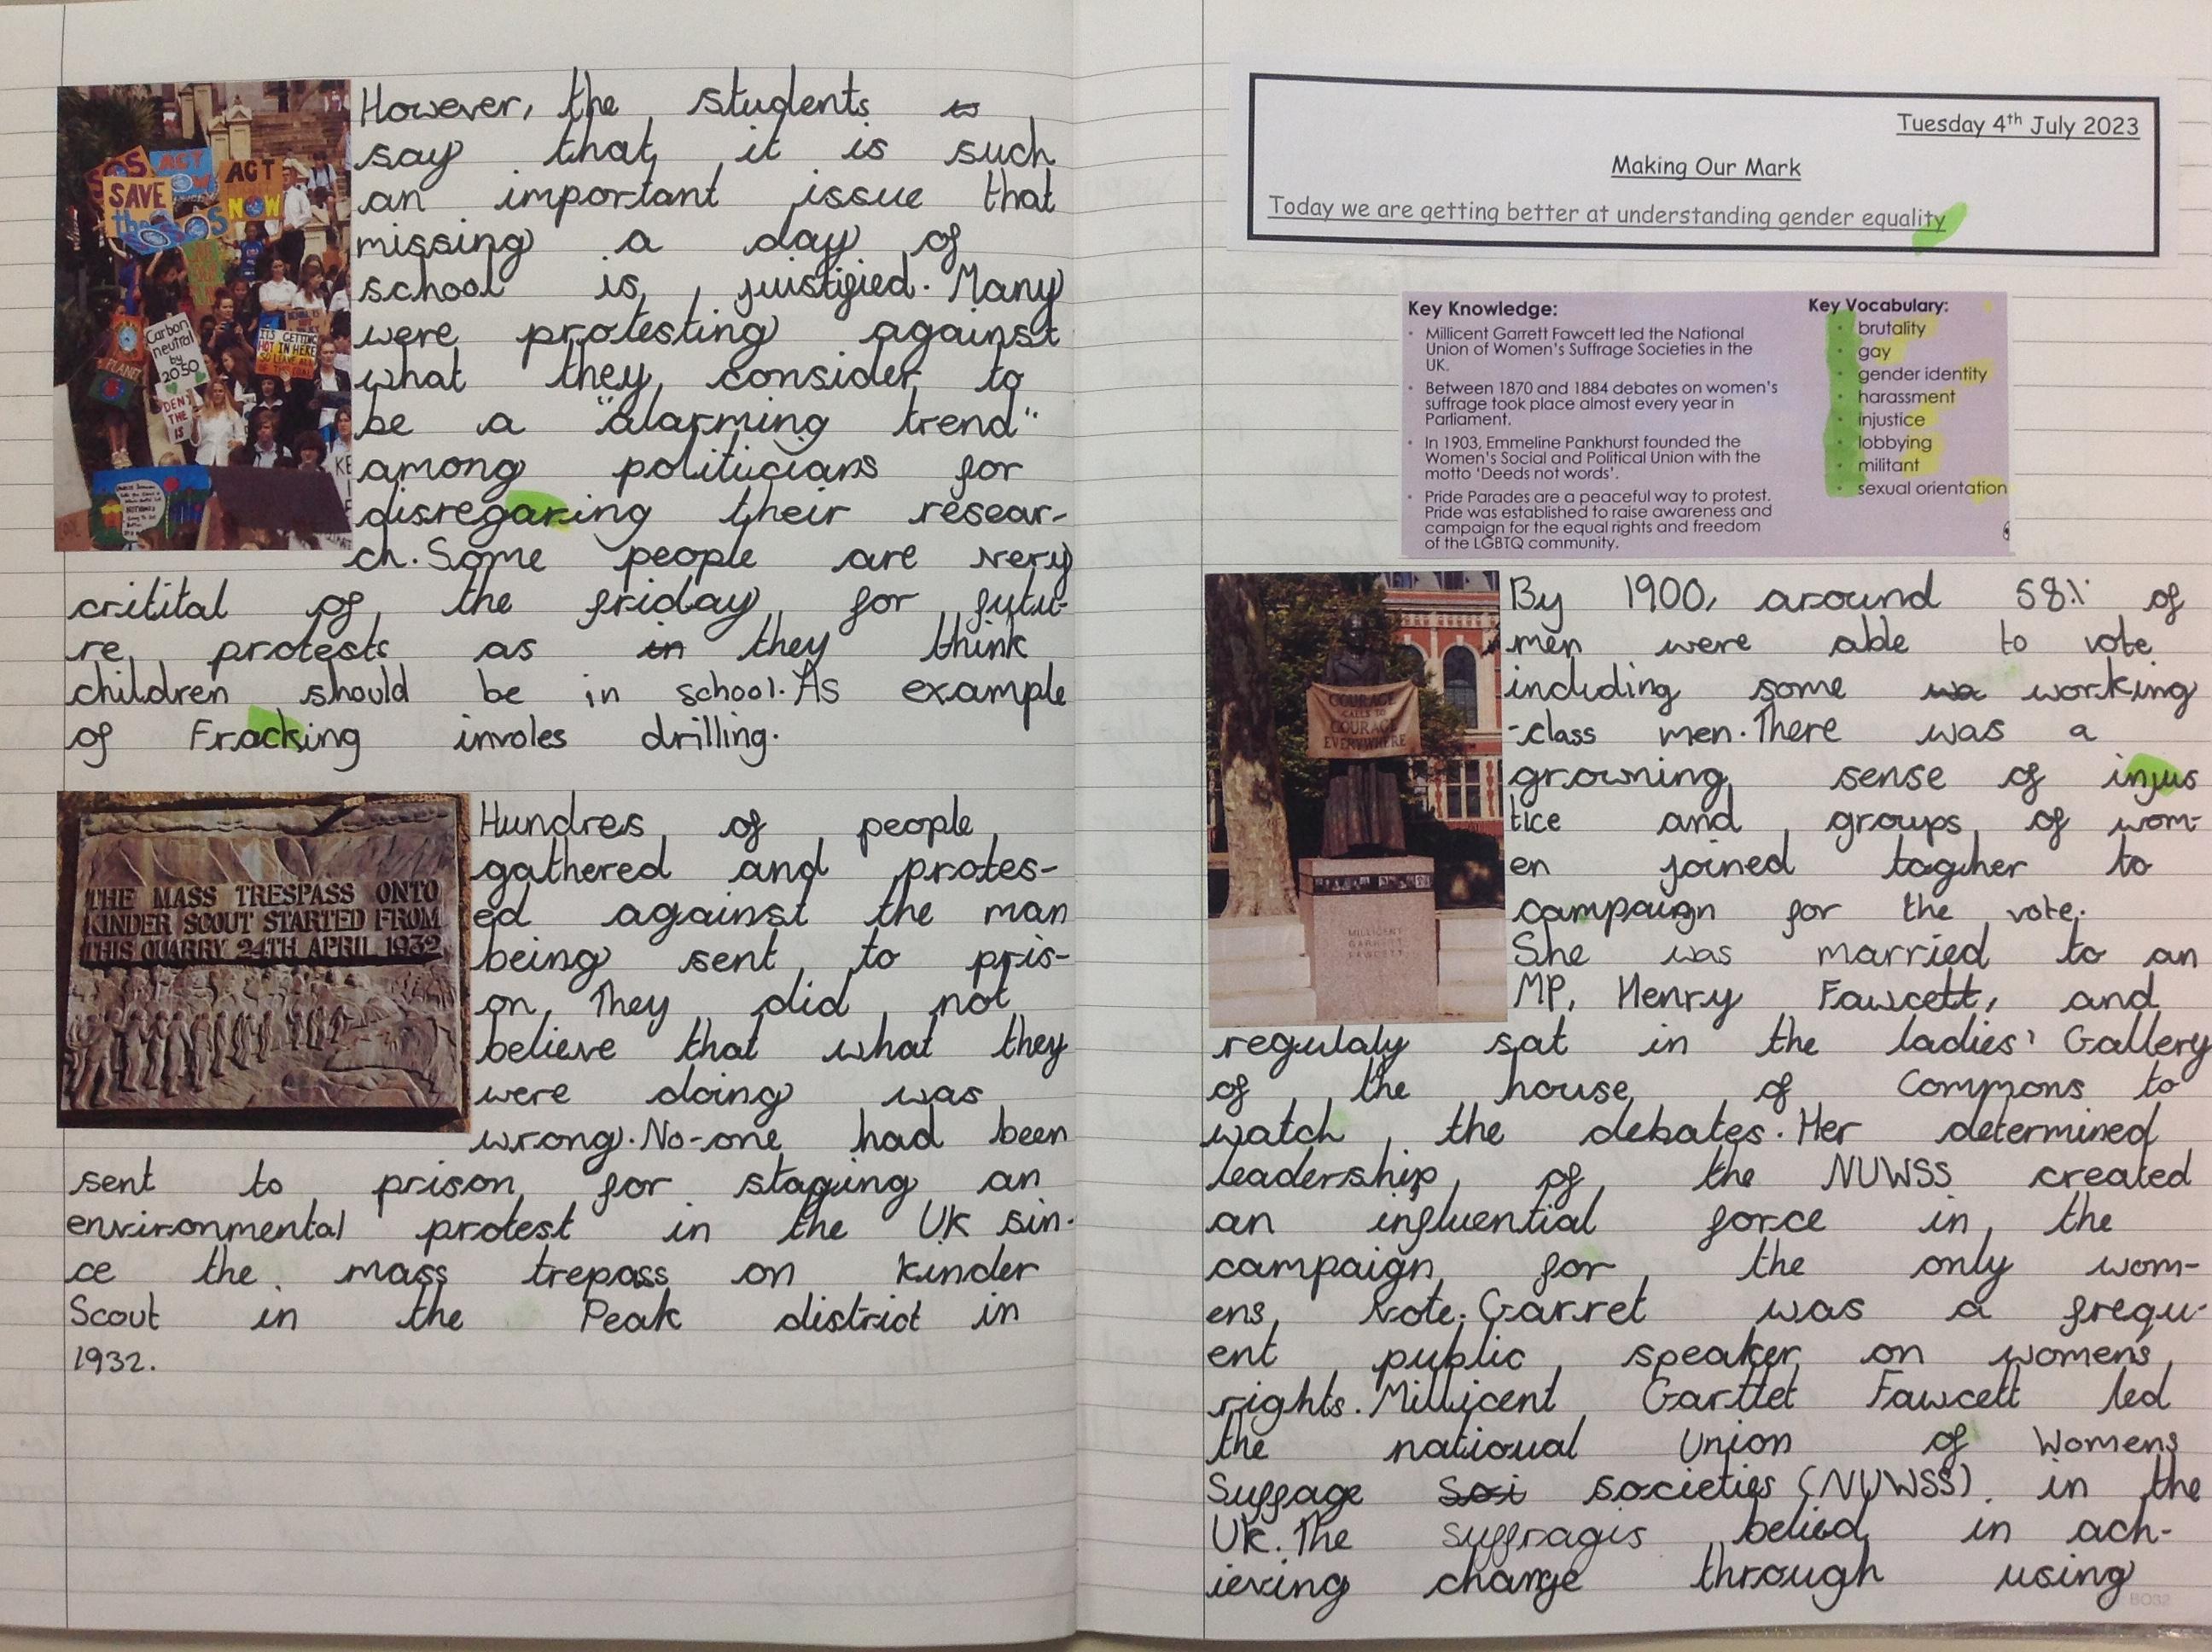 However, the students is
say that it is such
an important issue that
missing a day of
school is juistified. Many
were protesting against
what they consider to
be a "alarming trend"
among politicians for
disregaring their resear-
ch. Some people are very
critital of the friday for futu-
re protests as in they think
children should be in school. As example
of Fracking involes drilling.
SOS
ACT
NOW
SAVE
the
ACT
NOW
Carbon
neutral
by
2050
IT'S GETTING
HOT IN HERE
PLANET
DENY
THE
IS
Hundres of people
gathered and protes-
ed against the man
being sent to pris-
on. They did not
believe that what they
were doing was
wrong. No-one had been
sent to prison for staging an
environmental protest in the UK sin-
ce the mass trepass on kinder
Scout in the Peak district in
1932.
THE MASS TRESPASS ONTO
KINDER SCOUT STARTED FROM
THIS QUARRY 24TH APRIL 1932
Tuesday 4th July 2023
Making Our Mark
Today we are getting better at understanding gender equality
Key Knowledge:
• Millicent Garrett Fawcett led the National
Union of Women's Suffrage Societies in the
UK.
• Between 1870 and 1884 debates on women's
suffrage took place almost every year in
Parliament.
• In 1903, Emmeline Pankhurst founded the
Women's Social and Political Union with the
motto 'Deeds not words'.
• Pride Parades are a peaceful way to protest.
Pride was established to raise awareness and
campaign for the equal rights and freedom
of the LGBTQ community.
Key Vocabulary:
• brutality
• gay
• gender identity
• harassment
• injustice
• lobbying
• militant
• sexual orientation
By 1900, around 58% of
men were able to vote
including some wo working
-class men. There was a
growning sense of injus
tice and groups of wom-
en joined togther to
campaign for the vote.
She was married to an
MP, Henry Fawcett, and
regulaly sat in the ladies' Gallery
of the house of Commons to
watch the debates. Her determined
leadership of the NUWSS created
an influential force in the
campaign for the only wom-
ens vote. Garret was a frequ-
ent public speaker on womens
rights. Millicent Garttet Fawcett led
the national Union of Womens
Suffage Soi societies (NUWSS). in the
UK. The suffragis belied in ach-
ieving change through using
COURAGE
CALLS TO
COURAGE
EVERYWHERE
MILLICENT
GARRETT
FAWCETT